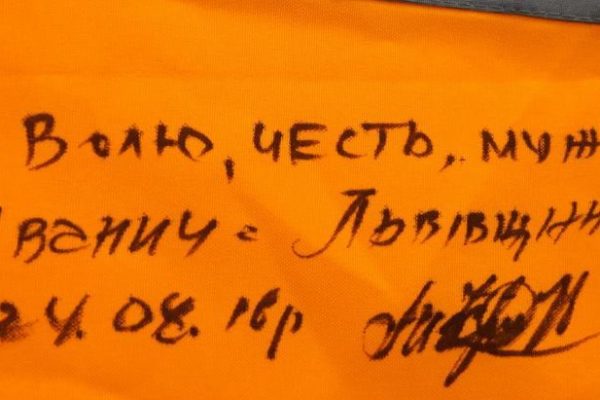 Волю, честь, муж
Іванич - Львівщин
24.08.